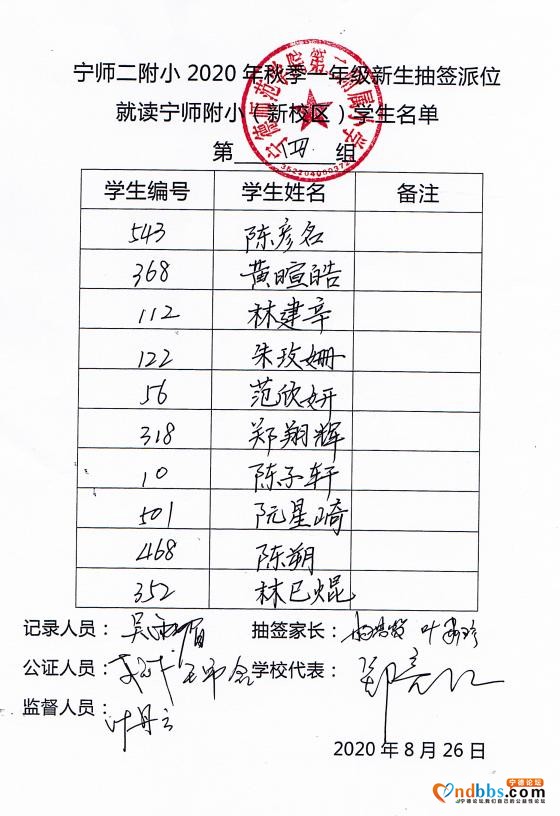 宁师二附小 2020 年秋季一年级新生抽签派位
就读宁师附小（新校区）学生名单
第 四 组
宁德师范学院第二附属小学
学生编号 学生姓名 备注
543 陈彦名
368 黄暄皓
112 林建辛
122 朱玫姗
56 范欣妍
318 郑翔辉
10 陈子轩
501 阮星崎
468 陈朔
352 林已焜
记录人员： 抽签家长：
公证人员： 学校代表：
监督人员： 叶丹云
2020 年 8 月 26 日
宁德论坛
ndbbs.com